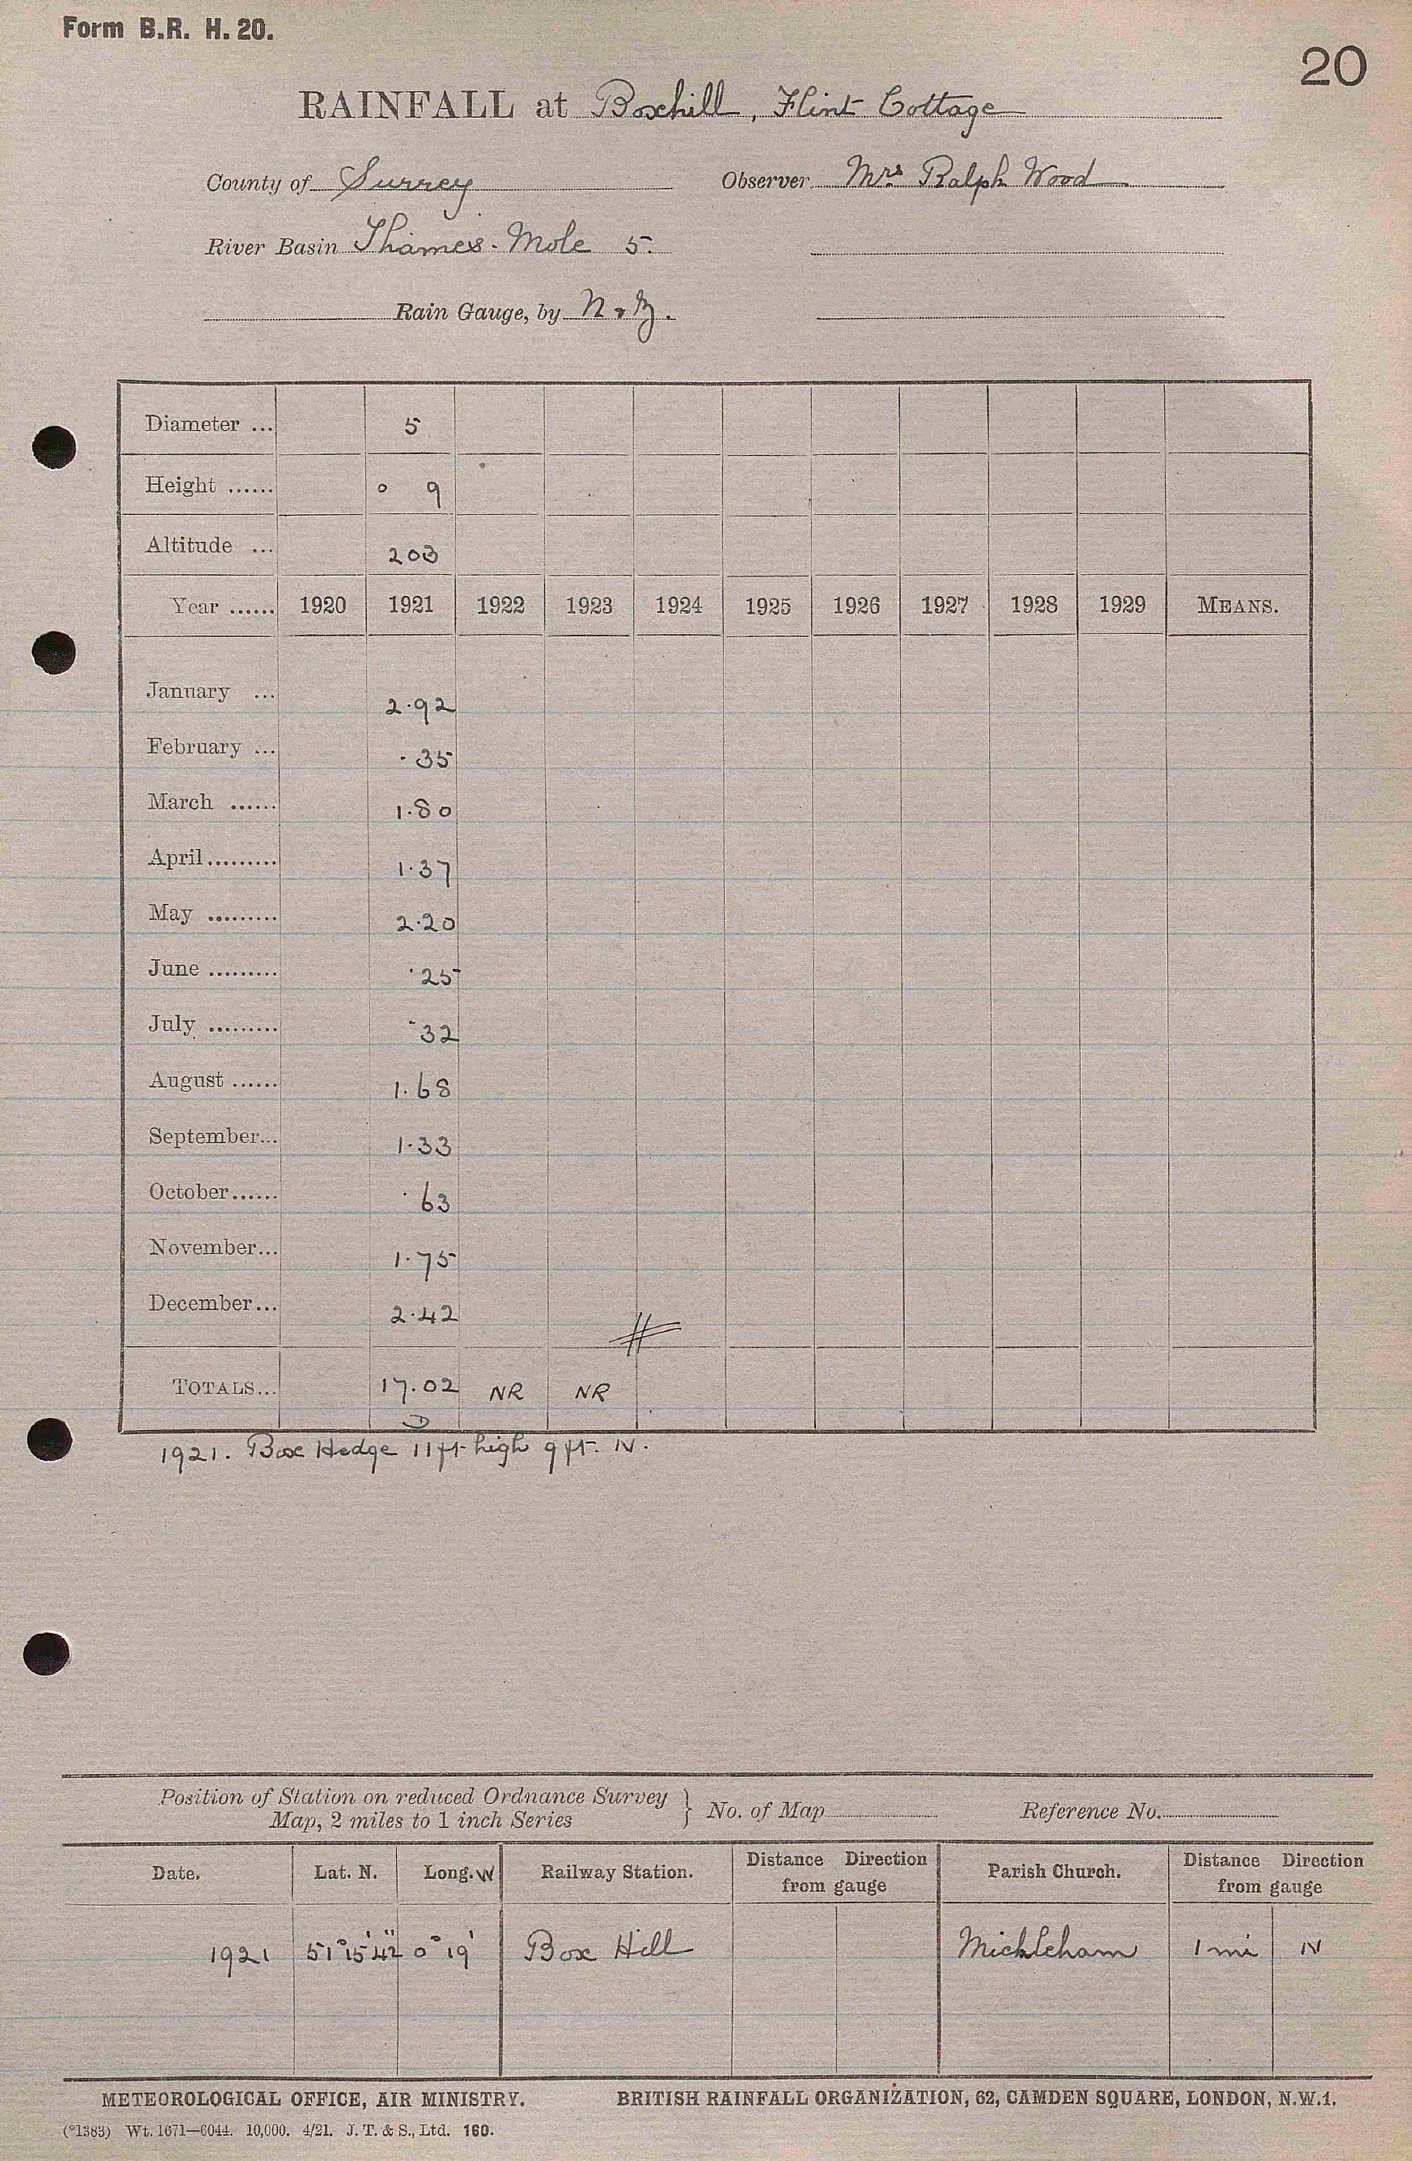 Form B.R. H. 20.
20
RAINFALL at Boxhill, Flint Cottage
County of Surrey Observer Mrs Ralph Wood
River Basin Thames-Mole 5.
Rain Gauge, by N & Z.
Diameter ... 5
Height ...... 0 9
Altitude ... 203
Year ...... 1920 1921 1922 1923 1924 1925 1926 1927 1928 1929 MEANS.
January ... 2.92
February ... .35
March ...... 1.80
April ......... 1.37
May ......... 2.20
June ......... .25
July ......... .32
August ...... 1.68
September... 1.33
October...... .63
November... 1.75
December... 2.42
TOTALS... 17.02 NR NR
D
1921. Box Hedge 11ft high 9 ft. N.
Position of Station on reduced Ordnance Survey
Map, 2 miles to 1 inch Series } No. of Map Reference No.
Date. Lat. N. Long. W Railway Station. Distance Direction from gauge Parish Church. Distance Direction from gauge
1921 51°15'42" 0° 19' Box Hill Mickleham 1 mi N
METEOROLOGICAL OFFICE, AIR MINISTRY. BRITISH RAINFALL ORGANIZATION, 62, CAMDEN SQUARE, LONDON, N.W.1.
(*1383) Wt. 1671—6044. 10,000. 4/21. J. T. & S., Ltd. 160.